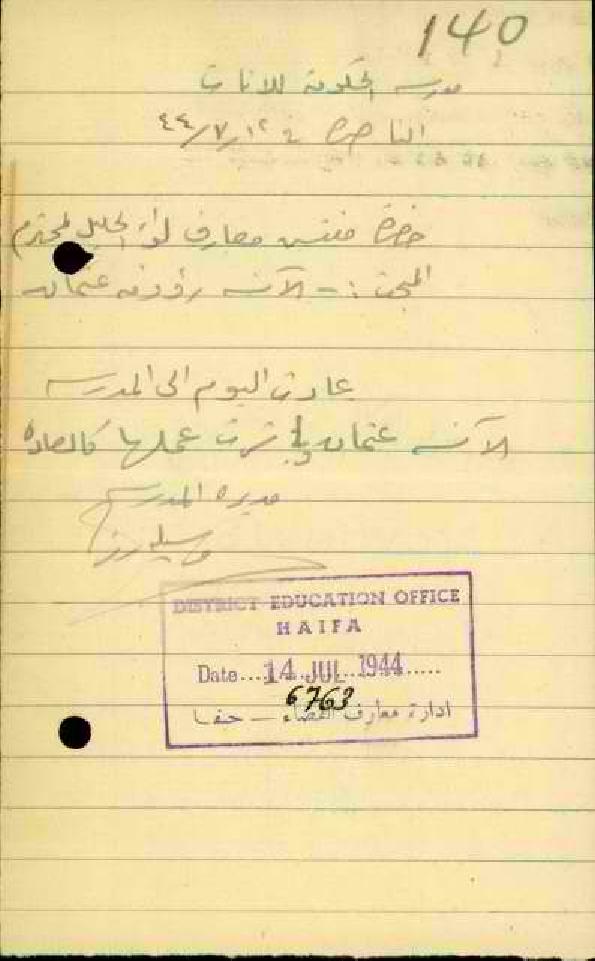 140
مدرسة الحكومة للاناث
الناصرة في ١٢/٧/٤٤
حضرة مفتش معارف لواء الجليل المحترم
المبحث :- الآنسه رؤوفه عثمان
عادت اليوم الى المدرسه
الآنسه عثمان وباشرت عملها كالعاده
مديرة المدرسه
DISTRICT EDUCATION OFFICE
HAIFA
Date....14 JUL 1944.....
6763
ادارة معارف القضاء – حيفا